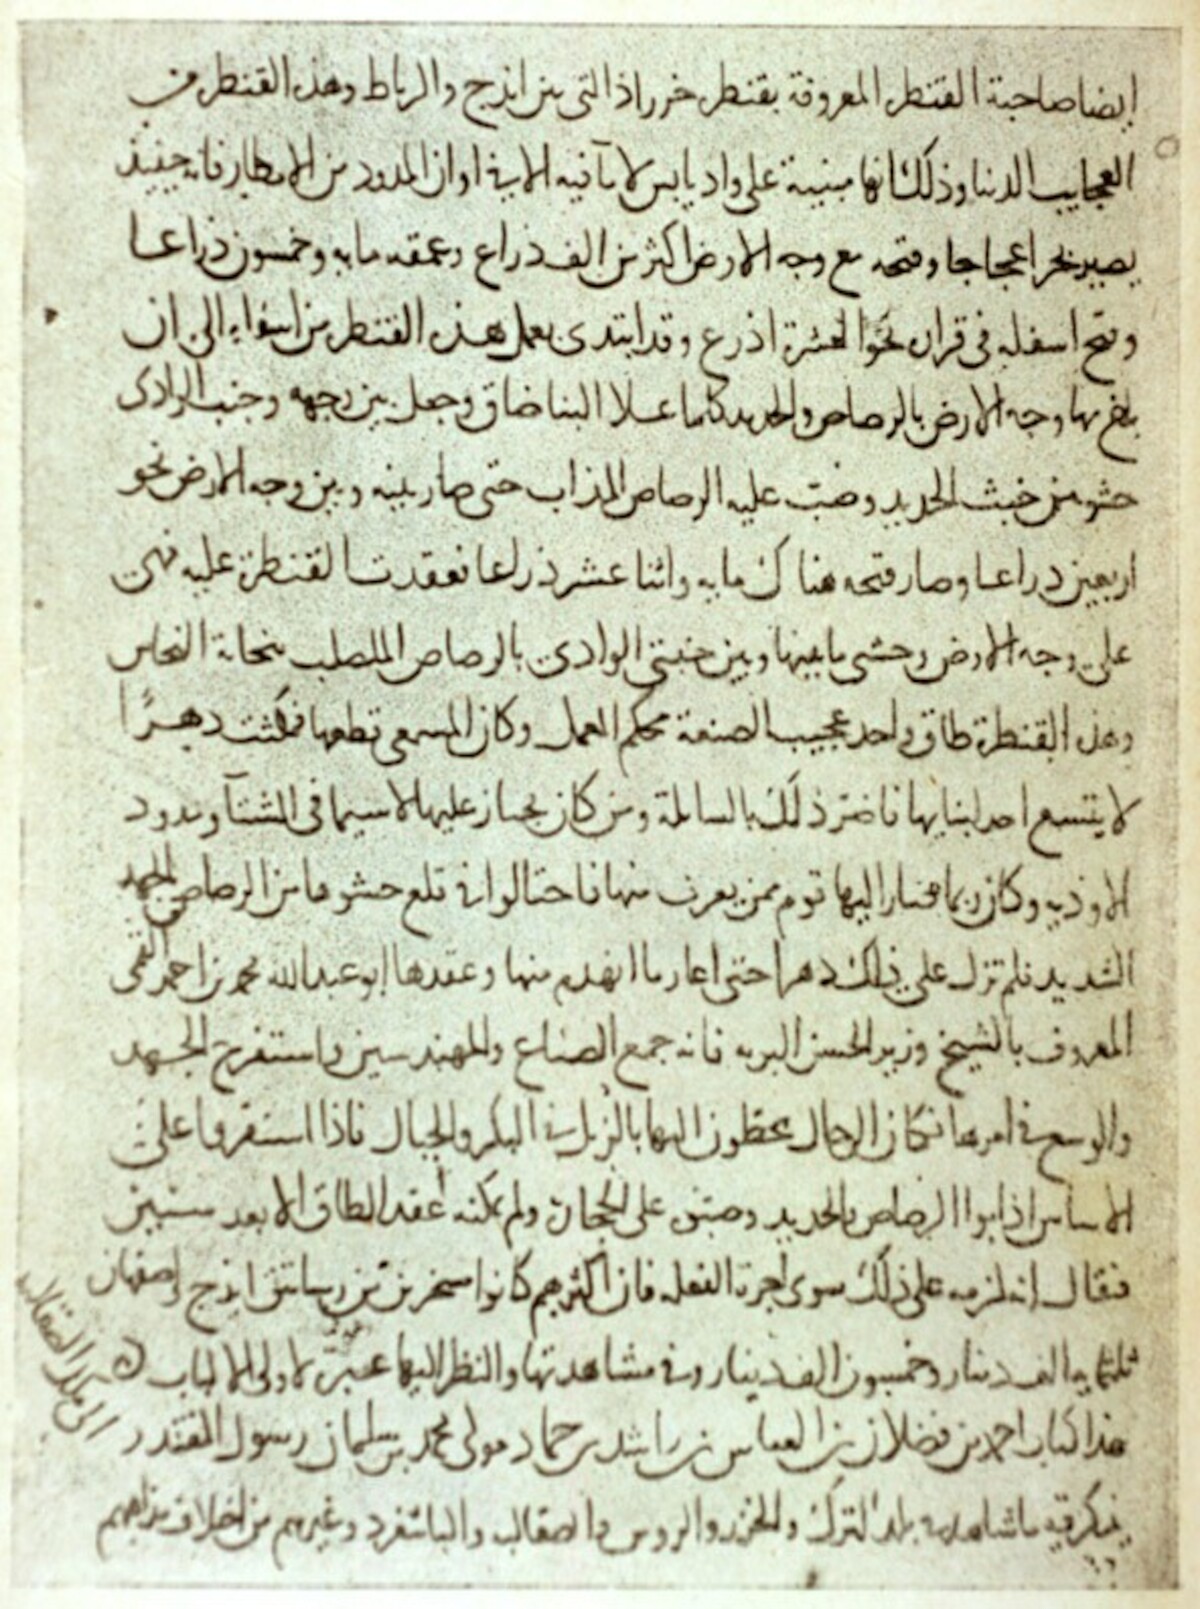 ايضا صاحبة القنطرة المعروفة بقنطرة خرراذ التى بين ايذج والرباط وهذه القنطرة من
العجايب الدنيا وذلك انها مبنية على واد يابس لا ماء فيه الا فى اوان المدود من الامطار فانه حينيذ
يصير بحرا عجاجا وفتحه مع وجه الارض اكثر من الف ذراع وعمقه مايه وخمسون ذراعا
وفتح اسفله فى قراره نحوا لعشرة اذرع وقد ابتدى بعمل هذه القنطرة من اسفله الى ان
بلغ بها وجه الارض بالرصاص والحديد كلما علا البنا ضاق وجعل بين وجهه وجنب الوادى
حشو من خبث الحديد وصب عليه الرصاص المذاب حتى صار بينه وبين وجه الارض نحو
اربعين ذراعا وصار فتحه هناك مايه واثنا عشر ذراعا فعقدت القنطرة عليه فهى
على وجه الارض وحشى ما بينها وبين جنبتى الوادى بالرصاص الملصلب بنحاتة النحاس
وهذه القنطرة طاق واحد عجيب الصنعة محكم العمل وكان المسمعى قطعها فمكثت دهرًا
لا يتسع احد لبنايها فاضر ذلك بالسابلة ومن كان يجتاز عليها لا سيما فى الشتآ ومدود
الاوديه وكان ربما صار اليها قوم ممن يقرب منها فاحتالوا فى قلع حشوها من الرصاص بالجهد
الشديد فلم تزل على ذلك دهرا حتى اعاد ما انهدم منها وعقدها ابو عبد الله محمد بن احمد القمى
المعروف بالشيخ وزير الحسن البويه فانه جمع الصناع والمهندسين واستفرغ الجهد
والوسع فى امرها فكان الرجال يحطون اليها بالزبل فى البكر والحبال فاذا استقروا على
الاساس اذابوا الرصاص والحديد وصبوه على الحجارة ولم يمكنه عقد الطاق الا بعد سنين
فيقال انه لزمه على ذلك سوى اجرة الفعله فان اكثرهم كانوا مسخرين من رساتيق ايذج واصفهان
ثلثمايه الف دينار وخمسون الف دينار وفى مشاهدتها والنظر اليها عبرة لاولى الالباب
هذا كتاب احمد بن فضلان بن العباس بن راشد بن حماد مولى محمد بن سليمان رسول المقتدر
الى ملك الصقالبه
يذكر فيه ما شاهد فى بلد الترك والخزر والروس والصقالبه والباشغرد وغيرهم من اختلاف مذاهبهم